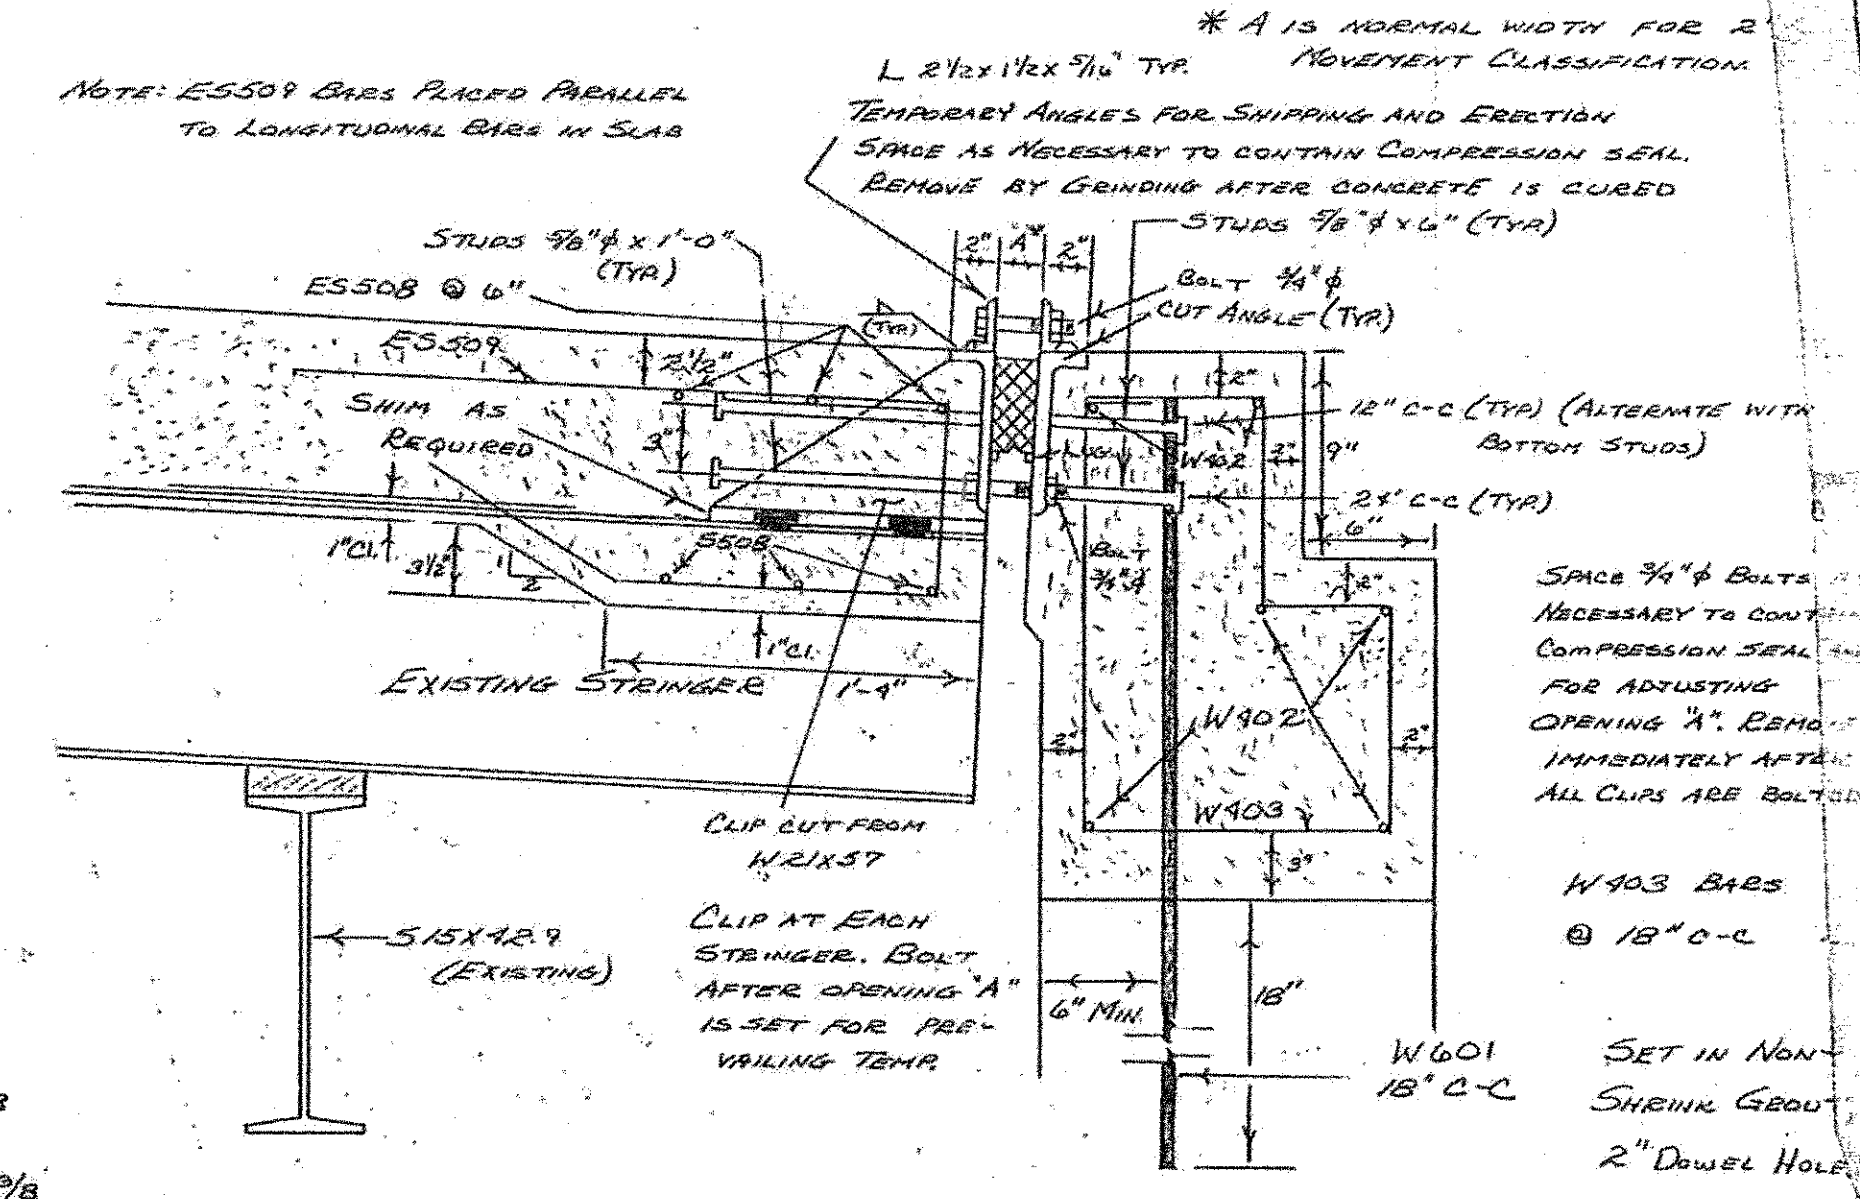 * A IS NORMAL WIDTH FOR 2"
MOVEMENT CLASSIFICATION.
NOTE: ES509 BARS PLACED PARALLEL
TO LONGITUDINAL BARS IN SLAB
L 2 1/2 x 1 1/2 x 5/16" TYP.
TEMPORARY ANGLES FOR SHIPPING AND ERECTION
SPACE AS NECESSARY TO CONTAIN COMPRESSION SEAL.
REMOVE BY GRINDING AFTER CONCRETE IS CURED
STUDS 5/8" φ x 6" (TYP)
STUDS 5/8" φ x 1'-0"
(TYP.)
ES508 @ 6"
2" A* 2"
BOLT 3/4" φ
CUT ANGLE (TYP.)
(TYP.)
ES509
2 1/2"
SHIM AS
REQUIRED
3"
2"
12" C-C (TYP) (ALTERNATE WITH
BOTTOM STUDS)
LUG
W402
2"
9"
24" C-C (TYP)
6"
1" CL.
3 1/2"
1
2
S508
BOLT
3/4" φ
2"
1" CL.
EXISTING STRINGER
1'-4"
SPACE 3/4" φ BOLTS
NECESSARY TO
COMPRESSION SEAL
FOR ADJUSTING
OPENING "A".
IMMEDIATELY
ALL CLIPS ARE BOLTED
W402
2"
2"
W403
3"
CLIP CUT FROM
W21X57
W403 BARS
@ 18" C-C
S15X42.9
(EXISTING)
CLIP AT EACH
STRINGER. BOLT
AFTER OPENING "A"
IS SET FOR PRE-
VAILING TEMP.
6" MIN.
18"
W601
18" C-C
SET IN NON-
SHRINK
2" DOWEL HOLE
3/8